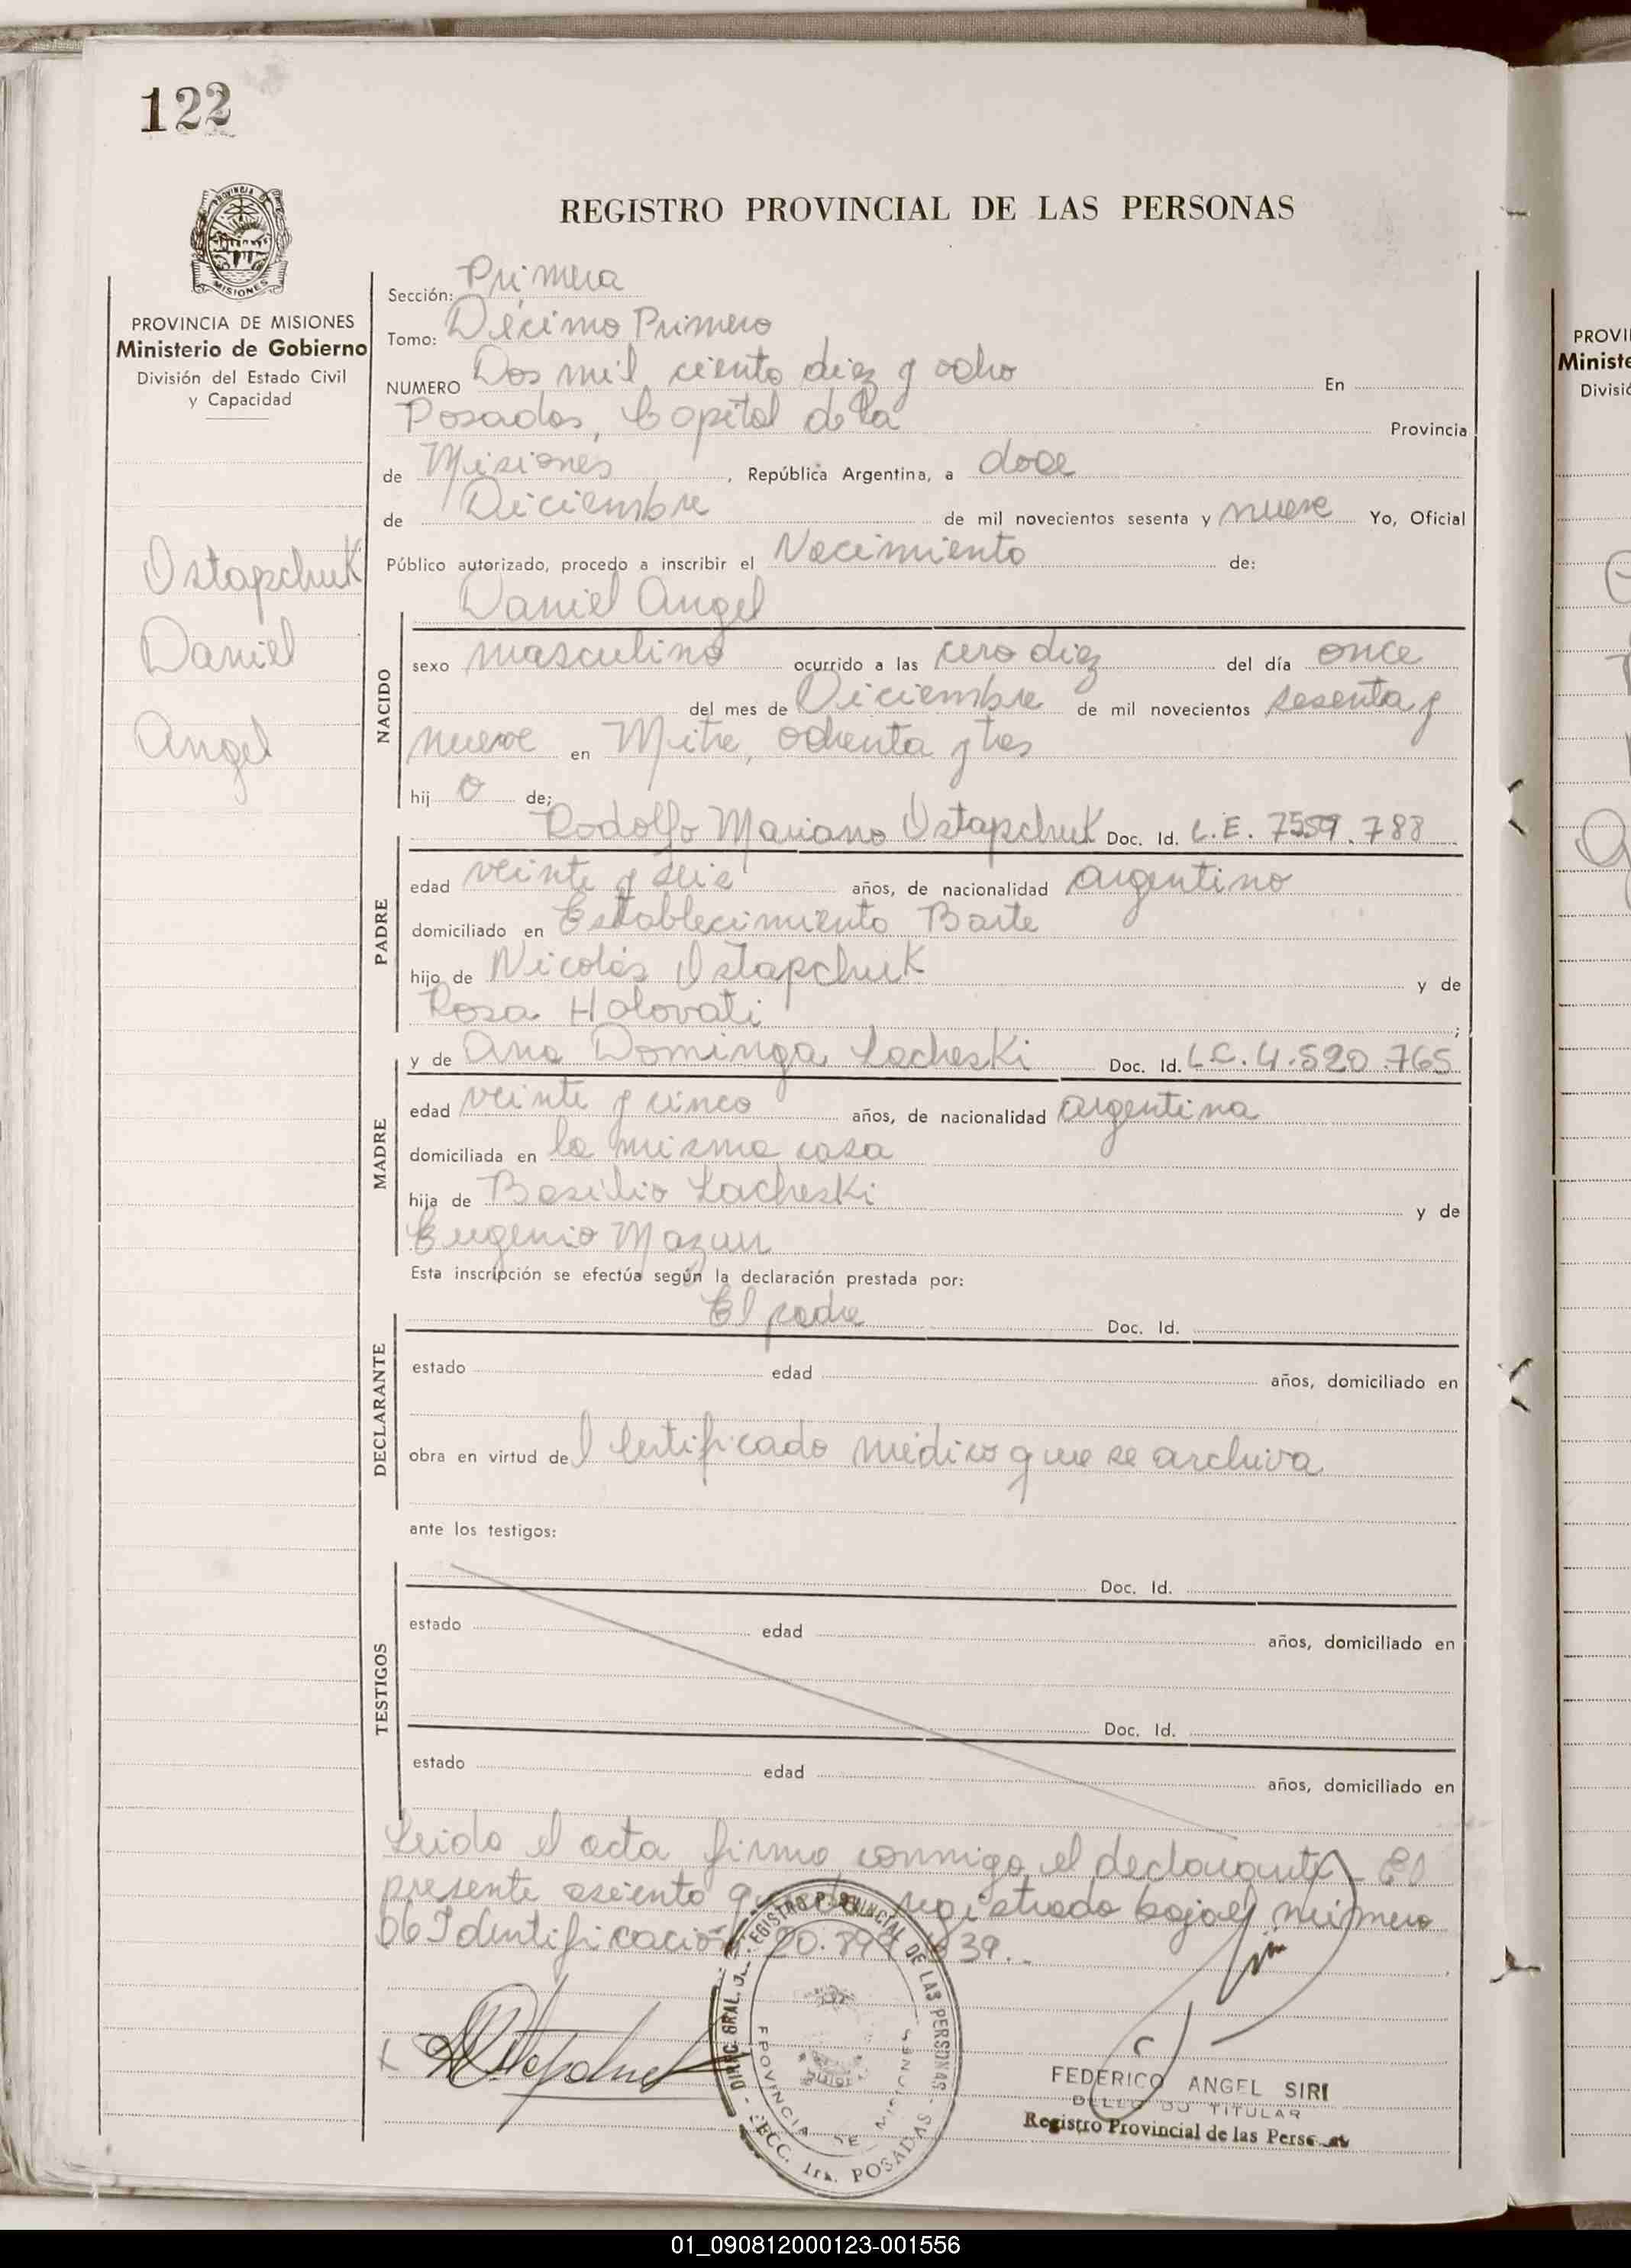 122
PROVINCIA
MISIONES
REGISTRO PROVINCIAL DE LAS PERSONAS
PROVINCIA DE MISIONES
Ministerio de Gobierno
División del Estado Civil
y Capacidad
Ostapchuk
Daniel
Angel
Sección: Primera
Tomo: Décimo Primero
NUMERO Dos mil ciento diez y ocho En
Posadas, Capital de la Provincia
de Misiones, República Argentina, a doce
de Diciembre de mil novecientos sesenta y nueve Yo, Oficial
Público autorizado, procedo a inscribir el Nacimiento de:
Daniel Angel
NACIDO
sexo masculino ocurrido a las cero diez del día once
del mes de Diciembre de mil novecientos sesenta y
nueve en Mitre, ochenta y tres
hijo de;
Rodolfo Mariano Ostapchuk Doc. Id. L.E. 7559.788
PADRE
edad veinte y seis años, de nacionalidad argentino
domiciliado en Establecimiento Barte
hijo de Nicolás Ostapchuk y de
Rosa Holovati;
y de Ana Dominga Lacheski Doc. Id. L.C. 4.520.765
MADRE
edad veinte y cinco años, de nacionalidad argentina
domiciliada en la misma casa
hija de Basilio Lacheski y de
Eugenio Mazur
Esta inscripción se efectúa según la declaración prestada por:
El padre Doc. Id.
DECLARANTE
estado edad años, domiciliado en
obra en virtud del Certificado médico que se archiva
ante los testigos:
Doc. Id.
TESTIGOS
estado edad años, domiciliado en
Doc. Id.
estado edad años, domiciliado en
Leida el acta firma conmigo el declarante_ El
presente asiento queda registrado bajo el número
de Identificación 20.899.839._
REGISTRO PROVINCIAL DE LAS PERSONAS
SECC. 1ra. POSADAS
FEDERICO ANGEL SIRI
TITULAR
Registro Provincial de las Perso
PROVI
Ministe
Divisió
01_090812000123-001556